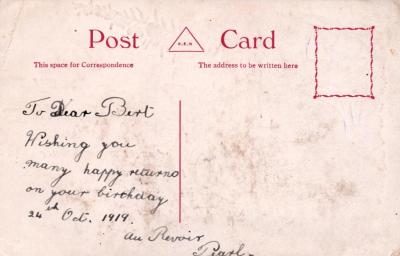 Post Card
This space for Correspondence
The address to be written here
To Dear Bert
Wishing you
many happy returns
on your birthday
24th Oct. 1919.
au Revoir
Pearl-